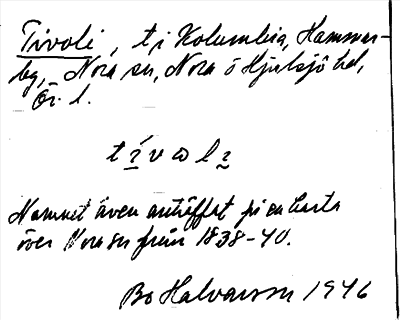 Tivoli, t, i Kolumbia, Hammar-
by, Nora sn, Nora o Hjulsjö bd,
Ör. l.
Namnet även anträffat på en karta
över Nora sn från 1838-40.
Bo Halvarson 1946